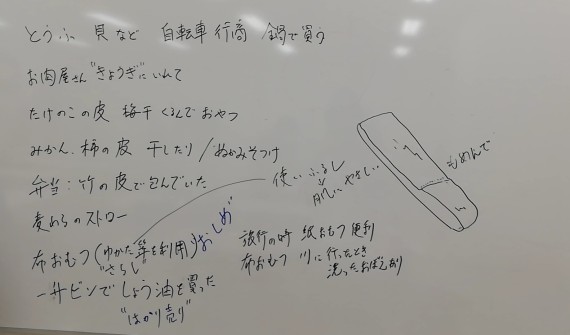 とうふ 貝など 自転車行商 鍋で買う
お肉屋さん"きょうぎ"にいれて
たけのこの皮 梅干くるんでおやつ
みかん、柿の皮 干したり/ぬかみそつけ
弁当:竹の皮で包んでいた
使いふるし
肌にやさしい
もめんで
麦わらのストロー
布おむつ(ゆかた等を利用)"おしめ"
"さらし"
旅行の時 紙おむつ便利
布おむつ 川に行ったとき
洗ったおぼえあり
一升ビンでしょう油を買った
"はかり売り"